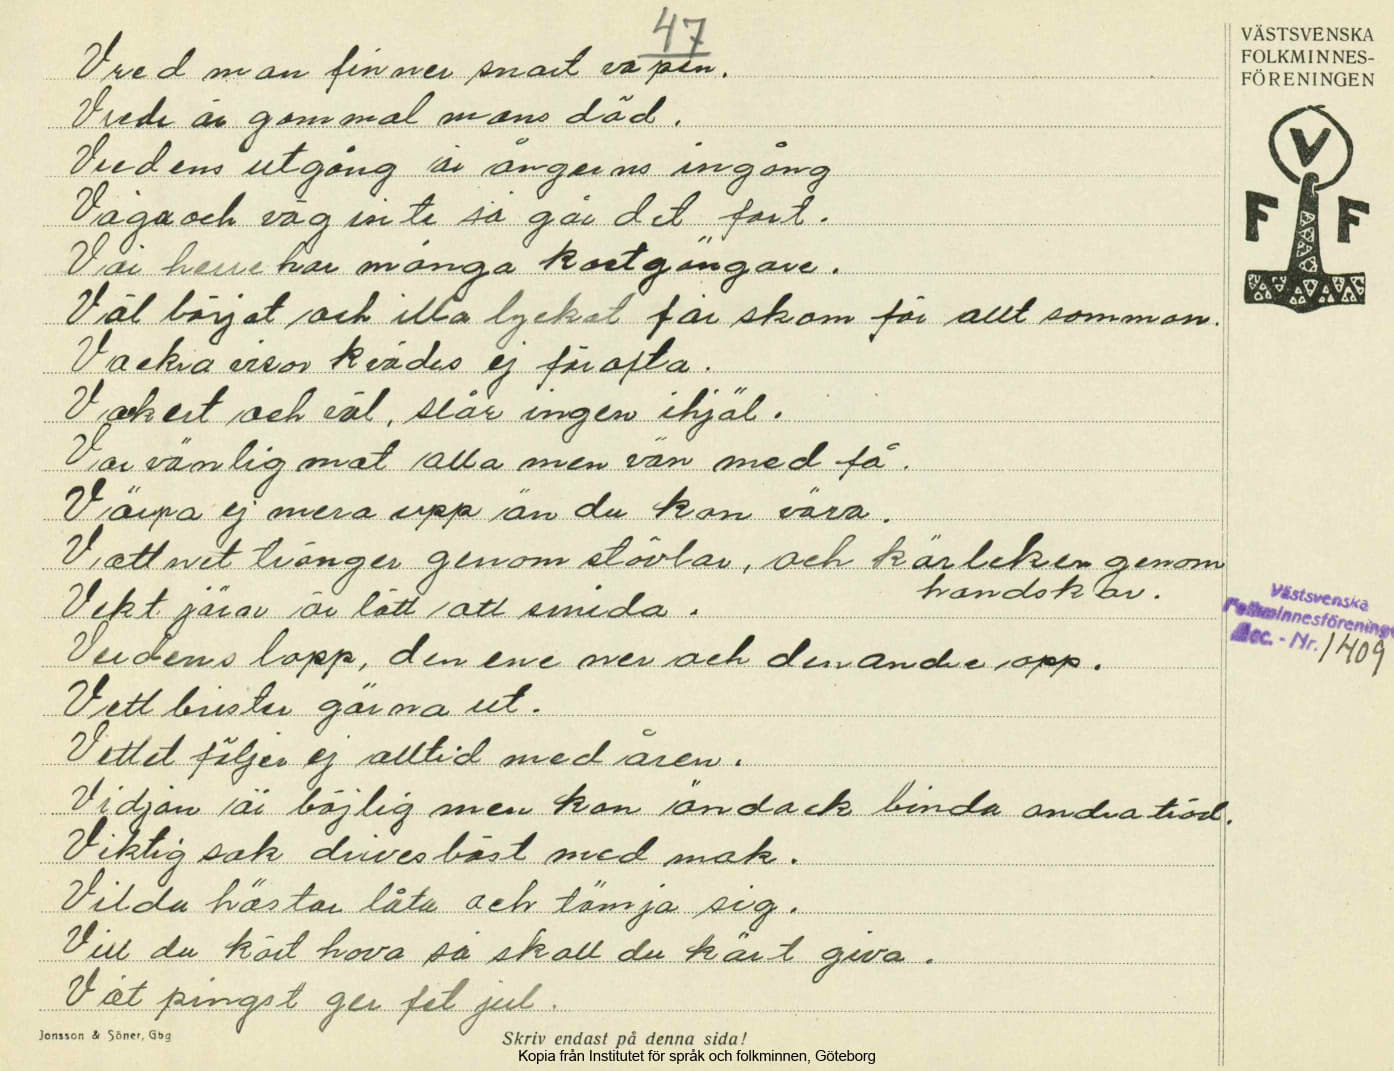 47
Vred man finner snart vapen.
Vrede är gammal mans död.
Vredens utgång är ångerns ingång
Våga och väg inte så går det fort.
Vår herre har många kostgängare.
Väl börjat och illa lyckat får skam för allt samman.
Vackra visor kvädes ej för ofta.
Vackert och väl, slår ingen ihjäl.
Var vänlig mot alla men vän med få.
Värpa ej mera upp än du kan
Vattnet tränger genom stövlar, och kärleken genom
handskar.
Vekt järn är lätt att smida.
Verdens lopp, den ene ner och den andre opp.
Vett brister gärna ut.
Vettet följer ej alltid med åren.
Vidjan är böjlig men kan ändock binda andra träd.
Viktig sak drives bäst med mak.
Vilda hästar låta och tämja sig.
Vill du kärt hava så skall du kärt giva.
Våt pingst ger fet jul.
VÄSTSVENSKA
FOLKMINNES-
FÖRENINGEN
V
F F
Västsvenska
Folkminnesföreningen
Acc. - Nr. 1409
Jonsson & Söner, Gbg
Skriv endast på denna sida!
Kopia från Institutet för språk och folkminnen, Göteborg